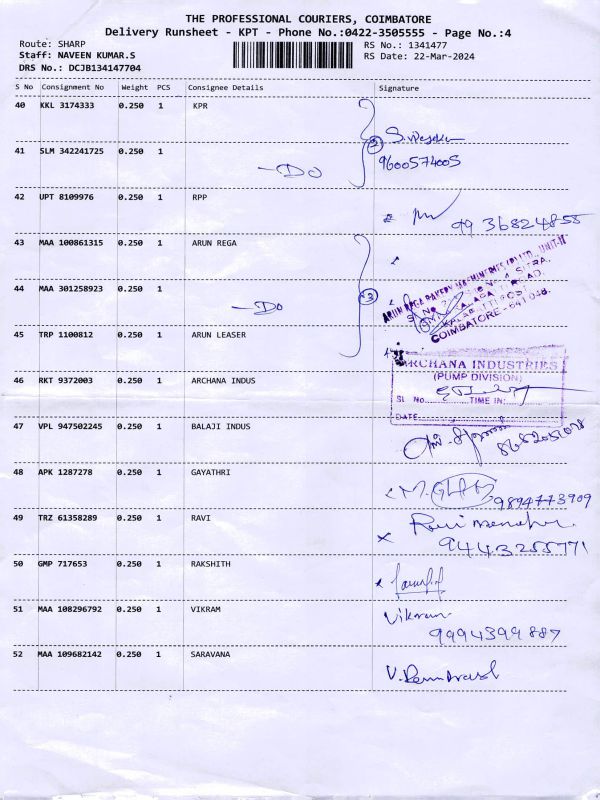 THE PROFESSIONAL COURIERS, COIMBATORE
Delivery Runsheet - KPT - Phone No.:0422-3505555 - Page No.:4
Route: SHARP
RS No.: 1341477
Staff: NAVEEN KUMAR.S
RS Date: 22-Mar-2024
DRS No.: DCJB134147704
S No Consignment No Weight PCS Consignee Details Signature
40 KKL 3174333 0.250 1 KPR
41 SLM 342241725 0.250 1
-Do 2 9600574005
42 UPT 8109976 0.250 1 RPP
99 36824855
43 MAA 100861315 0.250 1 ARUN REGA
44 MAA 301258923 0.250 1
-Do 3
COIMBATORE - 641 048.
45 TRP 1100812 0.250 1 ARUN LEASER
46 RKT 9372003 0.250 1 ARCHANA INDUS
ARCHANA INDUSTRIES
(PUMP DIVISION)
Sl No. TIME IN:
DATE
47 VPL 947502245 0.250 1 BALAJI INDUS
48 APK 1287278 0.250 1 GAYATHRI
9894773909
49 TRZ 61358289 0.250 1 RAVI
9443255771
50 GMP 717653 0.250 1 RAKSHITH
51 MAA 108296792 0.250 1 VIKRAM
Vikram
9994399887
52 MAA 109682142 0.250 1 SARAVANA